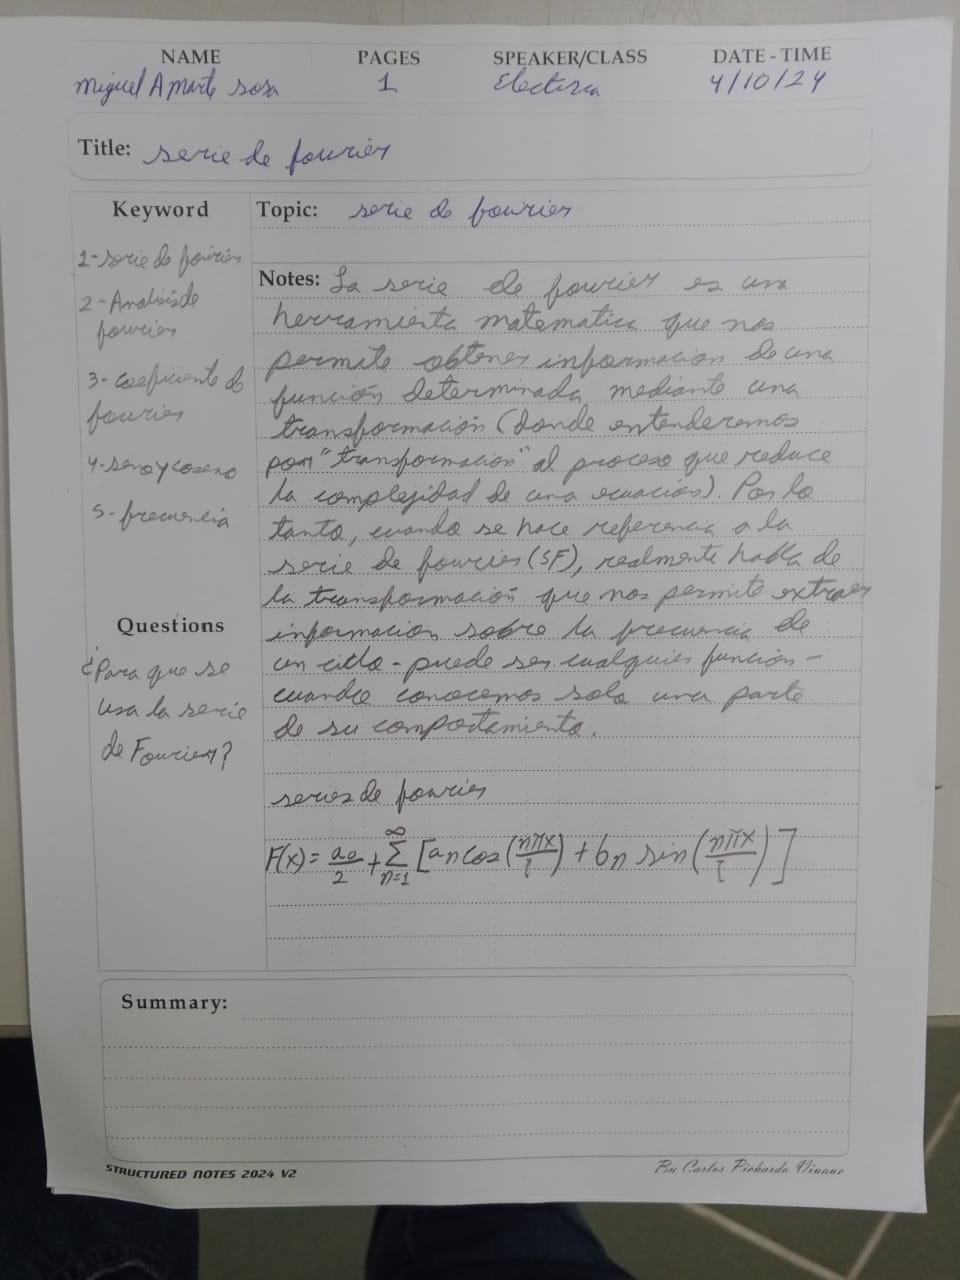 NAME PAGES SPEAKER/CLASS DATE - TIME
Miguel A Marte sosa 1 4/10/24
Title: serie de fourier
Keyword
1- serie de fourier
2- Analisis de
fourier
3- coeficiente de
fourier
4- seno y coseno
5- frecuencia
Questions
¿Para que se
usa la serie
de Fourier?
Topic: serie de fourier
Notes: La serie de fourier es una
herramienta matematica que nos
permite obtener informacion de una
función determinada mediante una
transformación (donde entenderemos
por "transformación" al proceso que reduce
la complejidad de una ecuación). Por lo
tanto, cuando se hace referencia a la
serie de fourier (SF), realmente habla de
la transformación que nos permite extraer
informacion sobre la frecuencia de
un ciclo - puede ser cualquier función -
cuando conocemos solo una parte
de su comportamiento.
series de fourier
F(x) = a₀/2 + ∞∑n=1 [an cos (nπx/l) + bn sin (nπx/l)]
Summary:
STRUCTURED NOTES 2024 V2 By Carlos Pichardo Viuque